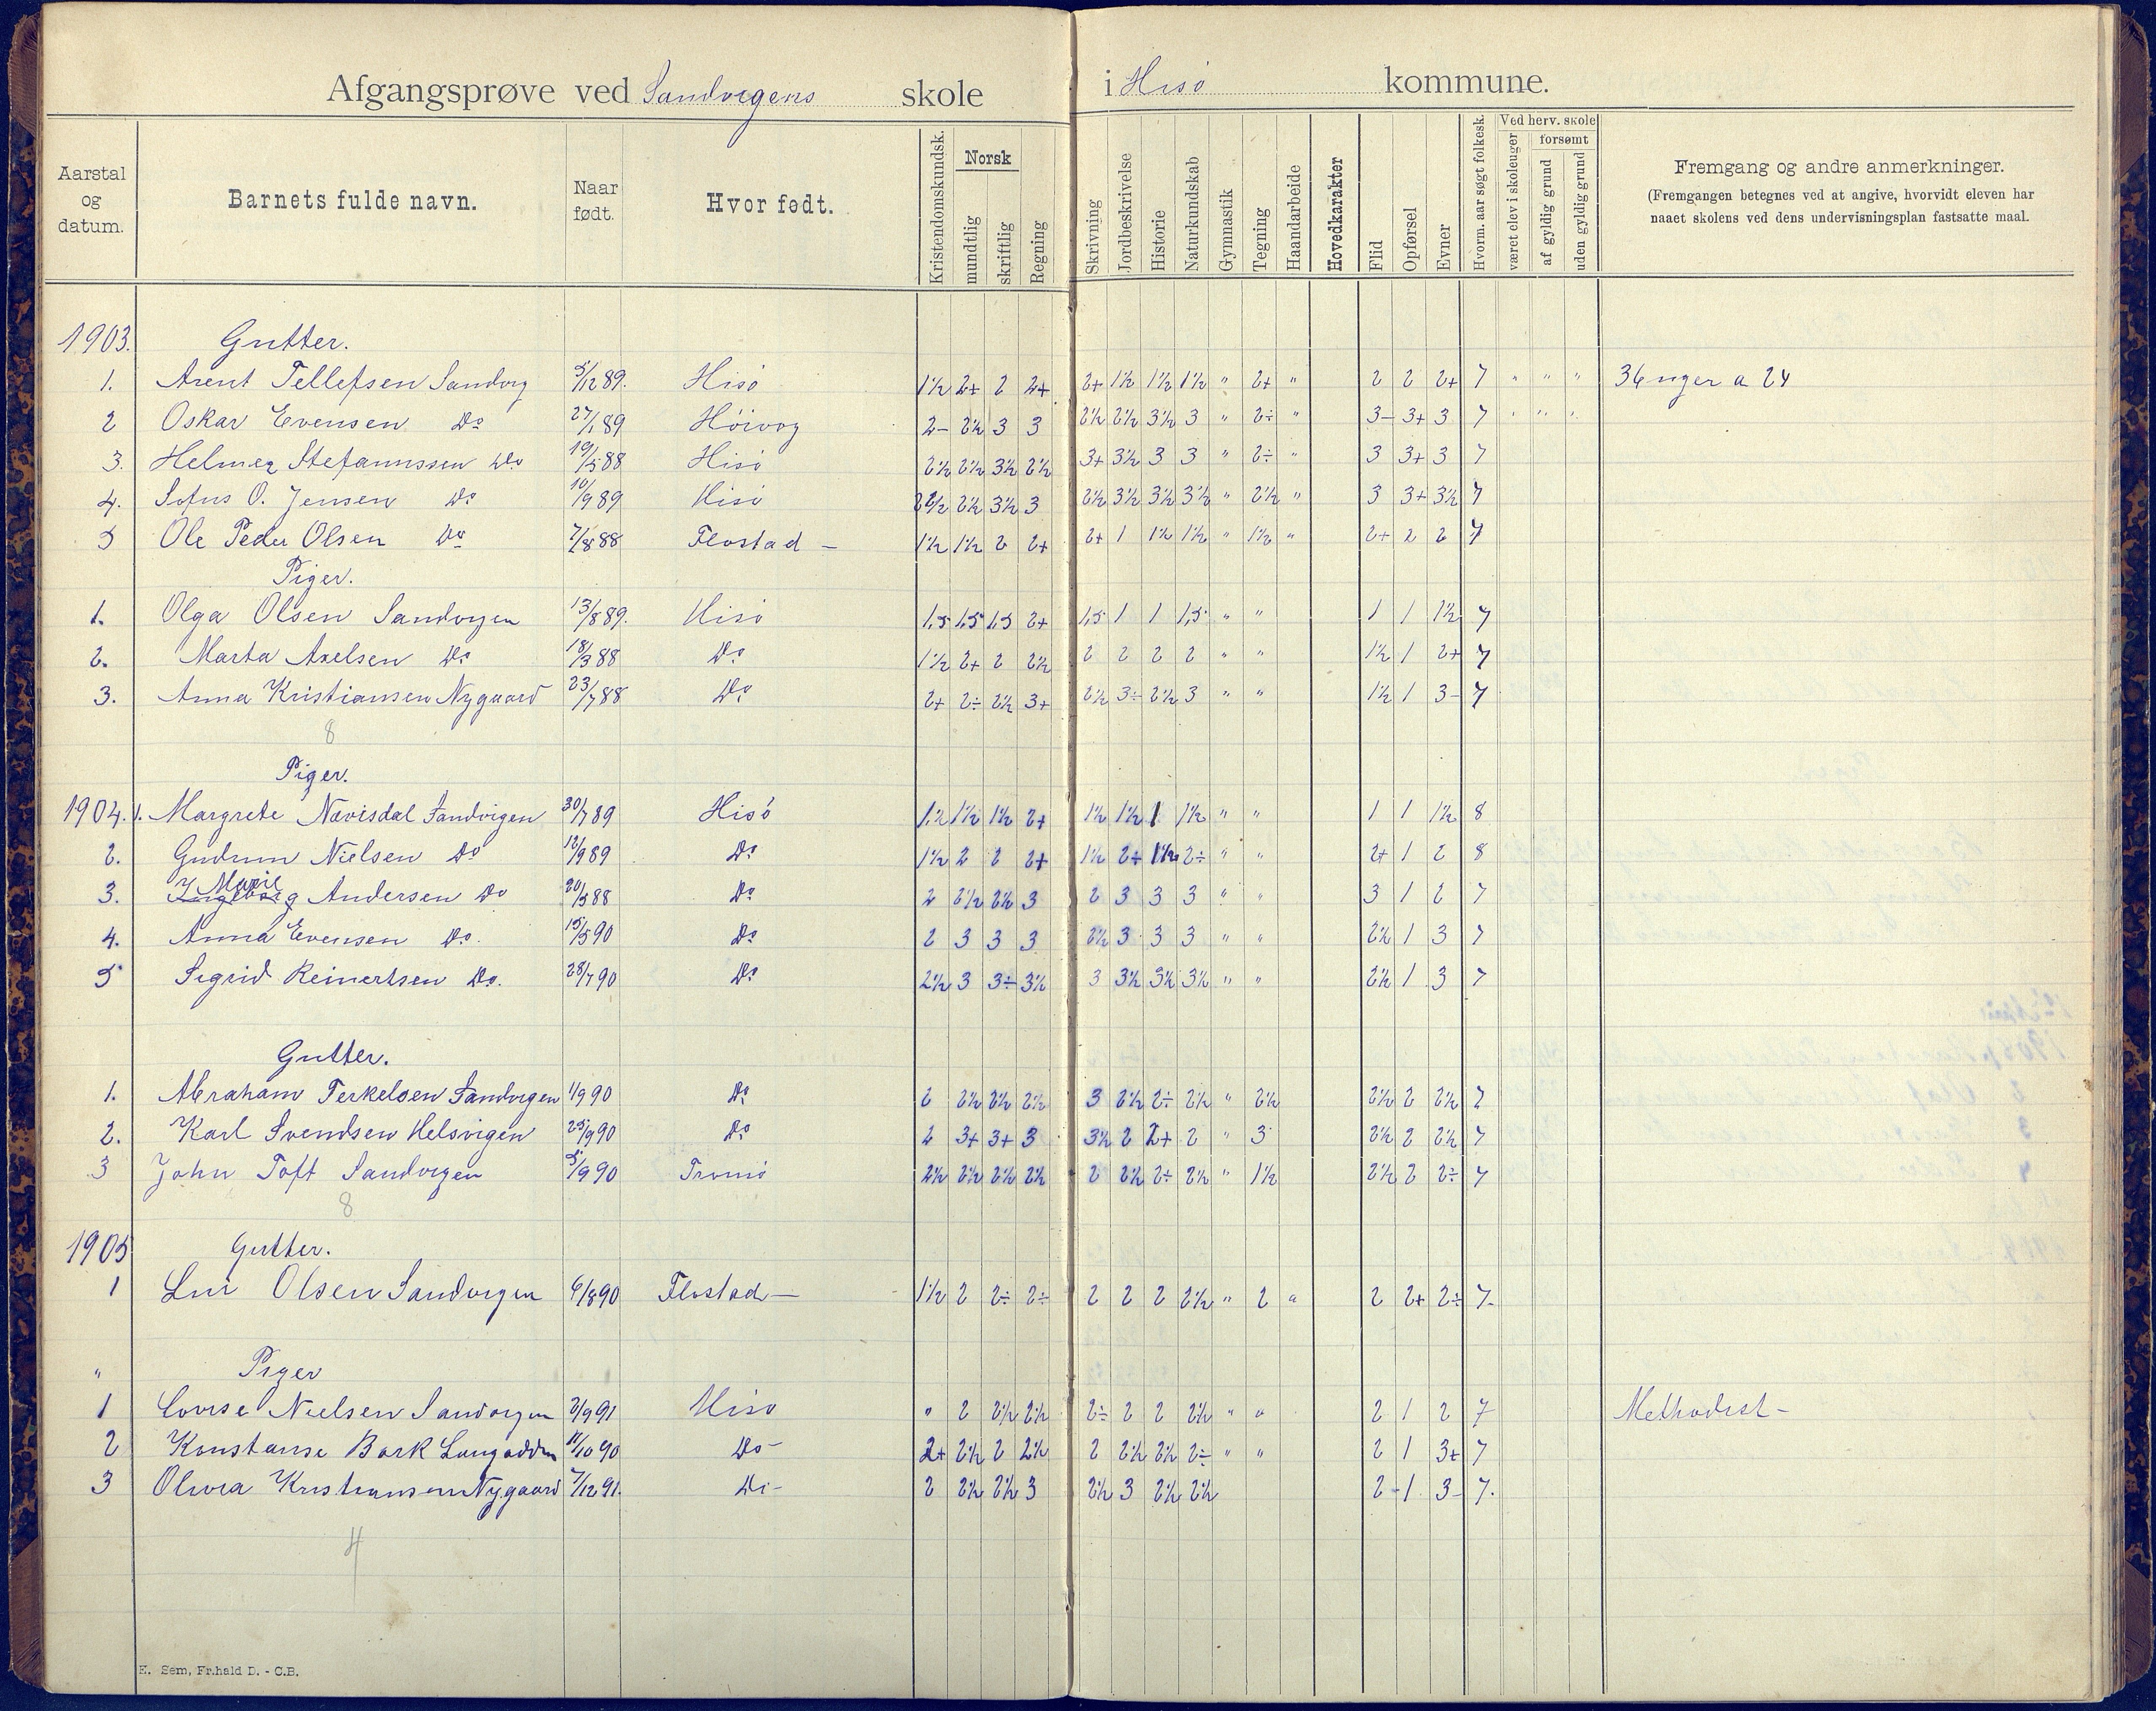 Afgangsprøve ved Sandvigens skole i Hisö kommune.
Aarstal og datum. Barnets fulde navn. Naar født. Hvor født. Kristendomskundsk. Norsk mundtlig skriftlig Regning Skrivning Jordbeskrivelse Historie Naturkundskab Gymnastik Tegning Haandarbeide Hovedkarakter Flid Opførsel Evner Hvorm. aar søgt folkesk. Ved herv. skole været elev i skoleuger forsømt af gyldig grund uden gyldig grund Fremgang og andre anmerkninger.
(Fremgangen betegnes ved at angive, hvorvidt eleven har
naaet skolens ved dens undervisningsplan fastsatte maal.
1903. Gutter.
1. Arent Tellefsen Sandvig 5/12 89. Hisö 1½ 2+ 2 2+ 2+ 1½ 1½ 1½ " 2+ " 2 2 2+ 7 " " " 36 uger a 24
2 Oskar Evensen Do 27/1 89 Höivog 2- 2½ 3 3 2½ 2½ 3½ 3 " 2÷ " 3- 3+ 3 7 " " "
3. Helmer Stefanussen Do 19/5 88 Hisö 2½ 2½ 3½ 2½ 3+ 3½ 3 3 " 2÷ " 3 3+ 3 7
4. Sofus O. Jensen Do 10/9 89 Hisö 2½ 2½ 3½ 3 2½ 3½ 3½ 3½ " 2½ " 3 3+ 3½ 7
5 Ole Peder Olsen Do 7/8 88 Flostad - 1½ 1½ 2 2+ 2+ 1 1½ 1½ " 1½ " 2+ 2 2 7
Piger.
1. Olga Olsen Sandvigen 13/8 89. Hisö 1,5 1,5 1,5 2+ 1,5 1 1 1,5 " " 1 1 1½ 7
2. Marta Axelsen Do 18/3 88 Do 1½ 2+ 2 2½ 2 2 2 2 " " 1½ 1 2+ 7
3. Anna Kristiansen Nygaard 23/7 88 Do 2+ 2÷ 2½ 3+ 2½ 3÷ 2½ 3 " " 1½ 1 3- 7
8
Piger.
1904. 1. Margrete Navisdal Sandvigen 30/7 89 Hisö 1½ 1½ 1½ 2+ 1½ 1½ 1 1½ " " 1 1 1½ 8
2. Gudrun Nielsen Do 12/9 89 Do 1½ 2 2 2+ 1½ 2+ 1½ 2÷ " " 2+ 1 2 8
Marie
3. Ingeborg Andersen Do 20/3 88 Do 2 2½ 2½ 3 2 3 3 3 " " 3 1 2 7
4. Anna Evensen Do. 15/5 90 Do 2 3 3 3 2½ 3 3 3 " " 2½ 1 3 7
5 Sigrid Reinertsen Do. 28/7 90 Do 2½ 3 3÷ 3½ 3 3½ 3½ 3½ " " 2½ 1 3 7
Gutter.
1. Abraham Terkelsen Sandvigen 1/9 90 Do 2 2½ 2½ 2½ 3 2½ 2÷ 2½ " 2½ 2½ 2 2½ 7
2. Karl Svendsen Helsvigen 25/9 90 Do 2 3+ 3+ 3 3½ 2 2+ 2 " 3 2½ 2 2½ 7
3 John Toft Sandvigen 5/9 90 Tromö 2½ 2½ 2½ 2½ 2 2½ 2÷ 2½ " 1½ 2½ 2 2÷ 7
8
1905 Gutter.
1 Olsen Sandvigen 6/8 90 Flostad - 1½ 2 2÷ 2÷ 2 2 2 2½ " 2 " 2 2+ 2÷ 7.
" Piger
1 Lovise Nielsen Sandvigen 2/9 91 Hisö " 2 2½ 2½ 2÷ 2 2 2½ " " 2 1 2 7 Methodist -
2 Konstanse Bork Langodden 11/10 90 Do - 2+ 2½ 2 2½ 2 2½ 2½ 2÷ " " 2 1 3+ 7
3 Olivia Kristiansen Nygaard 7/12 91. Do - 2 2½ 2½ 3 2½ 3 2½ 2½ 2- 1 3- 7.
4
E. Sem, Fr.hald D. - C.B.